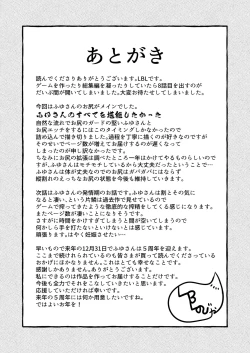 あとがき
読んでくださりありがとうございます。LBLです。
ゲームを作ったり総集編を募ったりしていたら8話目を出すのが
だいぶ間が開いてしまいました。大変お待たせしてしまいました。
今回はふゆさんのお尻がメインでした。
ふゆさんのすべてを堪能したかった
自然な流れでお尻のガードの堅いふゆさんと
お尻エッチをするにはこのタイミングしかなかったので
詰め込んで描き切りました。過程を丁寧に描くのが好きなのですが
そのせいでページ数が増えてお届けするのが遅くなって
しまったのが申し訳なかったです。
ちなみにお尻の拡張は調べたところ一年はかけてやるものらしいので
すが、ふゆさんはモチモチしているから大丈夫だったということで…
ふゆさんは体が丈夫なのでお尻はガバガバにはならず
縦割れのえっちなお尻の状態を今後も維持してくれます。
次話はふゆさんの発情期のお話です。ふゆさんは割とその気に
なると凄い、という片鱗は過去作で見せているので
ゲームで培ってきたような徹底的な搾精をしてくる感じになります。
またページ数が凄いことになりそうです。
さすがに時間をかけすぎてしまうと間が空いてしまうので
何かしら手を打たないといけないとは常に思っています。
頑張ります。はやく妊娠させたい…
早いもので来年の12月31日でふゆさんは5周年を迎えます。
ここまで続けられているのも皆さまが買って読んでくださっている
おかげにほかなりません。これはとても幸せなことです。
感謝しかありません。ありがとうございます。
私にできるのは作品を作ってお届けすることだけです。
今後も全力でそれをこなしていきたいと思います。
応援していただければ幸いです。
来年の5周年には何か用意したいですね。
ではよいお年を！